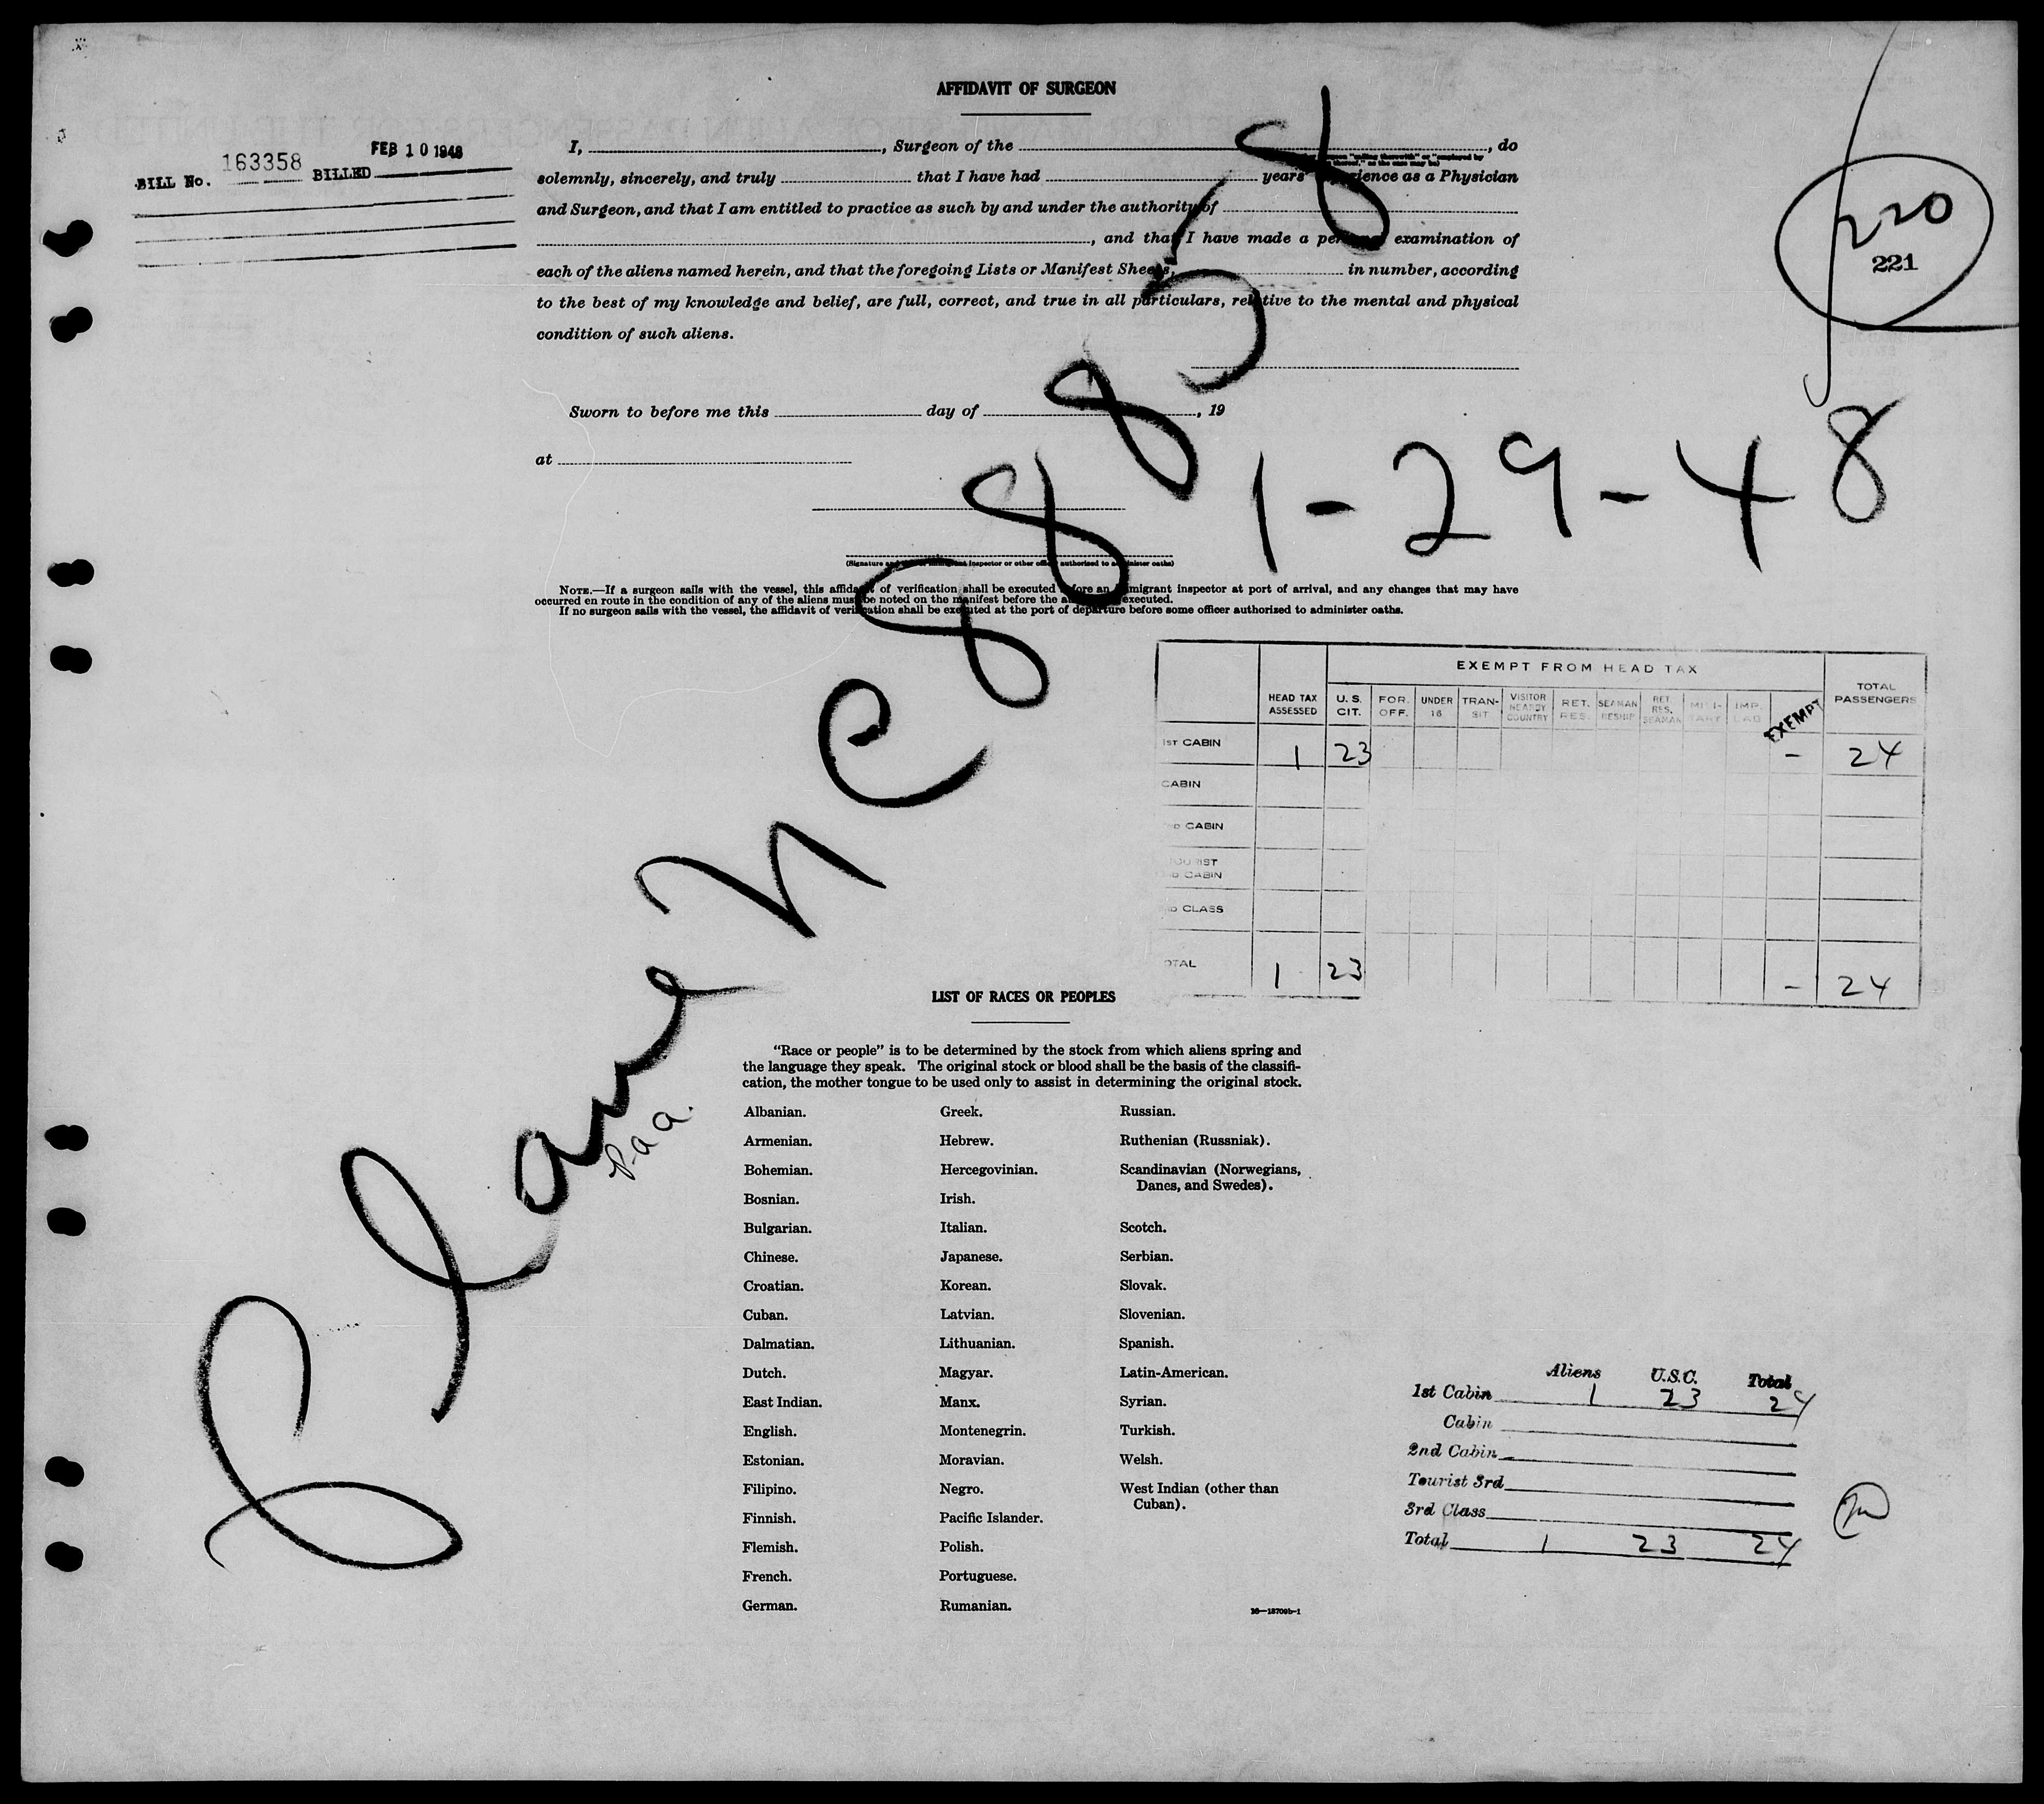 AFFIDAVIT OF SURGEON
BILL No. 163358 BILLED FEB 10 1948
I, , Surgeon of the , do
solemnly, sincerely, and truly that I have had years' experience as a Physician
and Surgeon, and that I am entitled to practice as such by and under the authority of
, and that I have made a personal examination of
each of the aliens named herein, and that the foregoing Lists or Manifest Sheets, in number, according
to the best of my knowledge and belief, are full, correct, and true in all particulars, relative to the mental and physical
condition of such aliens.
220
221
Sworn to before me this day of , 19
at
1-29-48
(Signature and title of immigrant inspector or other officer authorized to administer oaths)
NOTE.—If a surgeon sails with the vessel, this affidavit of verification shall be executed before an immigrant inspector at port of arrival, and any changes that may have
occurred en route in the condition of any of the aliens must be noted on the manifest before the affidavit is executed.
If no surgeon sails with the vessel, the affidavit of verification shall be executed at the port of departure before some officer authorized to administer oaths.
NC 88858
Paa.
EXEMPT FROM HEAD TAX
HEAD TAX ASSESSED U. S. CIT. FOR. OFF. UNDER 16 TRAN-SIT VISITOR NEARBY COUNTRY RET. RES. SEAMAN RESHIP RET. RES. SEAMAN MILI-TARY IMP. LAB EXEMPT TOTAL PASSENGERS
1ST CABIN 1 23 - 24
CABIN
ND CABIN
TOURIST
RD CABIN
RD CLASS
OTAL 1 23 - 24
LIST OF RACES OR PEOPLES
"Race or people" is to be determined by the stock from which aliens spring and
the language they speak. The original stock or blood shall be the basis of the classifi-
cation, the mother tongue to be used only to assist in determining the original stock.
Albanian. Greek. Russian.
Armenian. Hebrew. Ruthenian (Russniak).
Bohemian. Hercegovinian. Scandinavian (Norwegians,
Danes, and Swedes).
Bosnian. Irish.
Bulgarian. Italian. Scotch.
Chinese. Japanese. Serbian.
Croatian. Korean. Slovak.
Cuban. Latvian. Slovenian.
Dalmatian. Lithuanian. Spanish.
Dutch. Magyar. Latin-American.
East Indian. Manx. Syrian.
English. Montenegrin. Turkish.
Estonian. Moravian. Welsh.
Filipino. Negro. West Indian (other than
Cuban).
Finnish. Pacific Islander.
Flemish. Polish.
French. Portuguese.
German. Rumanian.
16—18709b-1
Aliens U.S.C. Total
1st Cabin 1 23 24
Cabin
2nd Cabin
Tourist 3rd
3rd Class
Total 1 23 24